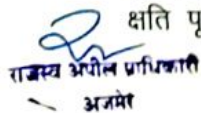 क्षति पू
राजस्व अपील प्राधिकारी
अजमेर